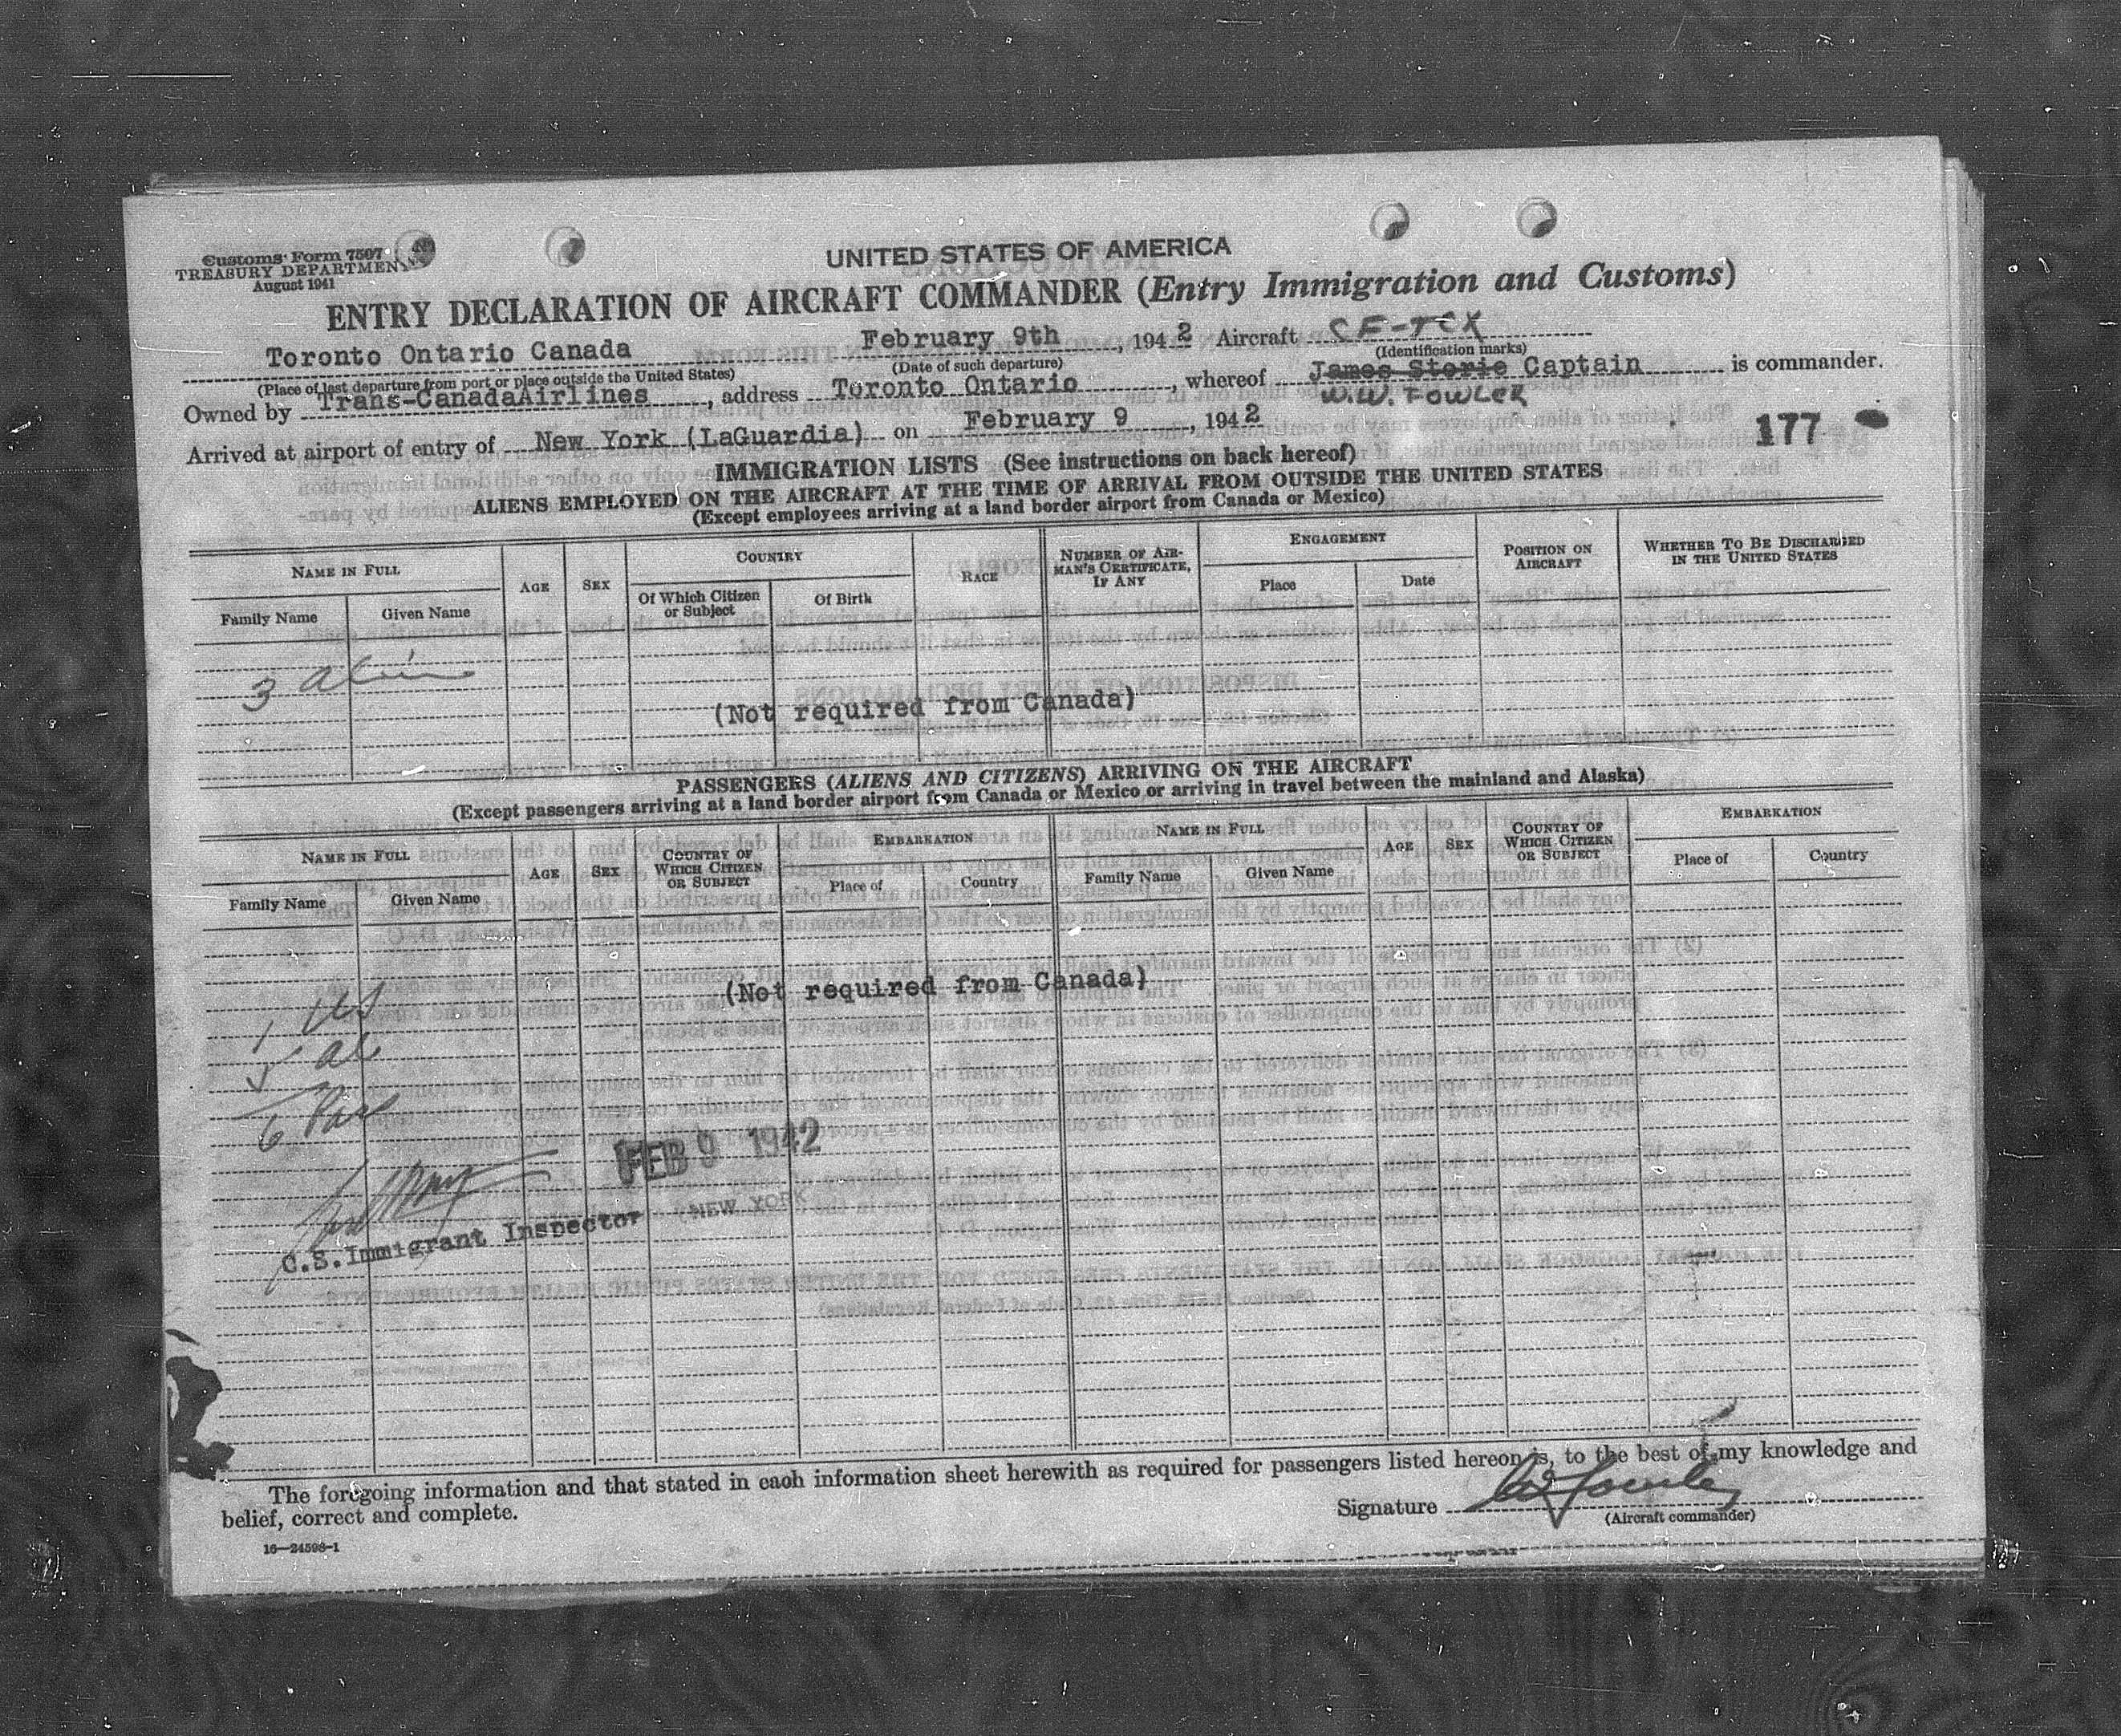 Customs Form 7507
TREASURY DEPARTMENT
August 1941
UNITED STATES OF AMERICA
ENTRY DECLARATION OF AIRCRAFT COMMANDER (Entry Immigration and Customs)
Toronto Ontario Canada February 9th, 1942 Aircraft CF-TCX
(Place of last departure from port or place outside the United States) (Date of such departure) (Identification marks)
Owned by Trans-CanadaAirlines, address Toronto Ontario, whereof James Storie Captain is commander.
W.W. FOWLER
Arrived at airport of entry of New York (LaGuardia) on February 9, 1942
177
IMMIGRATION LISTS (See instructions on back hereof)
ALIENS EMPLOYED ON THE AIRCRAFT AT THE TIME OF ARRIVAL FROM OUTSIDE THE UNITED STATES
(Except employees arriving at a land border airport from Canada or Mexico)
NAME IN FULL AGE SEX COUNTRY RACE NUMBER OF AIRMAN'S CERTIFICATE, IF ANY ENGAGEMENT POSITION ON AIRCRAFT WHETHER TO BE DISCHARGED IN THE UNITED STATES
Family Name Given Name Of Which Citizen or Subject Of Birth Place Date
3 Alien
(Not required from Canada)
PASSENGERS (ALIENS AND CITIZENS) ARRIVING ON THE AIRCRAFT
(Except passengers arriving at a land border airport from Canada or Mexico or arriving in travel between the mainland and Alaska)
NAME IN FULL AGE SEX COUNTRY OF WHICH CITIZEN OR SUBJECT EMBARKATION NAME IN FULL AGE SEX COUNTRY OF WHICH CITIZEN OR SUBJECT EMBARKATION
Family Name Given Name Place of Country Family Name Given Name Place of Country
(Not required from Canada)
1 US
5 al
6 Pass
FEB 9 1942
NEW YORK
U.S. Immigrant Inspector
The foregoing information and that stated in each information sheet herewith as required for passengers listed hereon is, to the best of my knowledge and
belief, correct and complete.
Signature W Fowler
(Aircraft commander)
16—24598-1